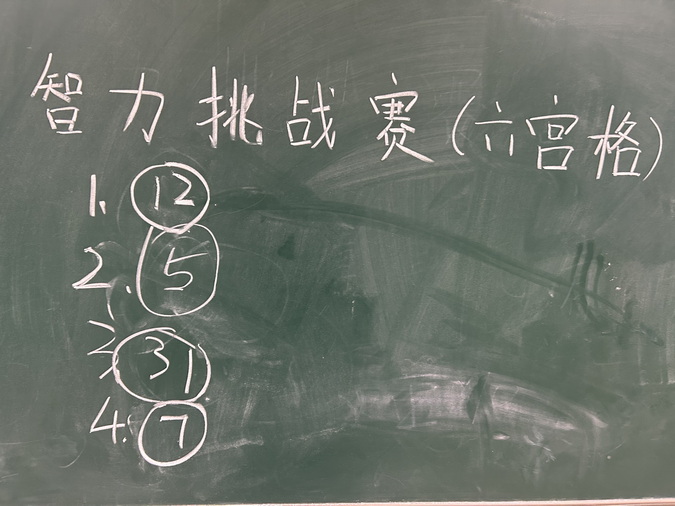 智力挑战赛(六宫格)
1. 12
2. 5
3. 31
4. 7